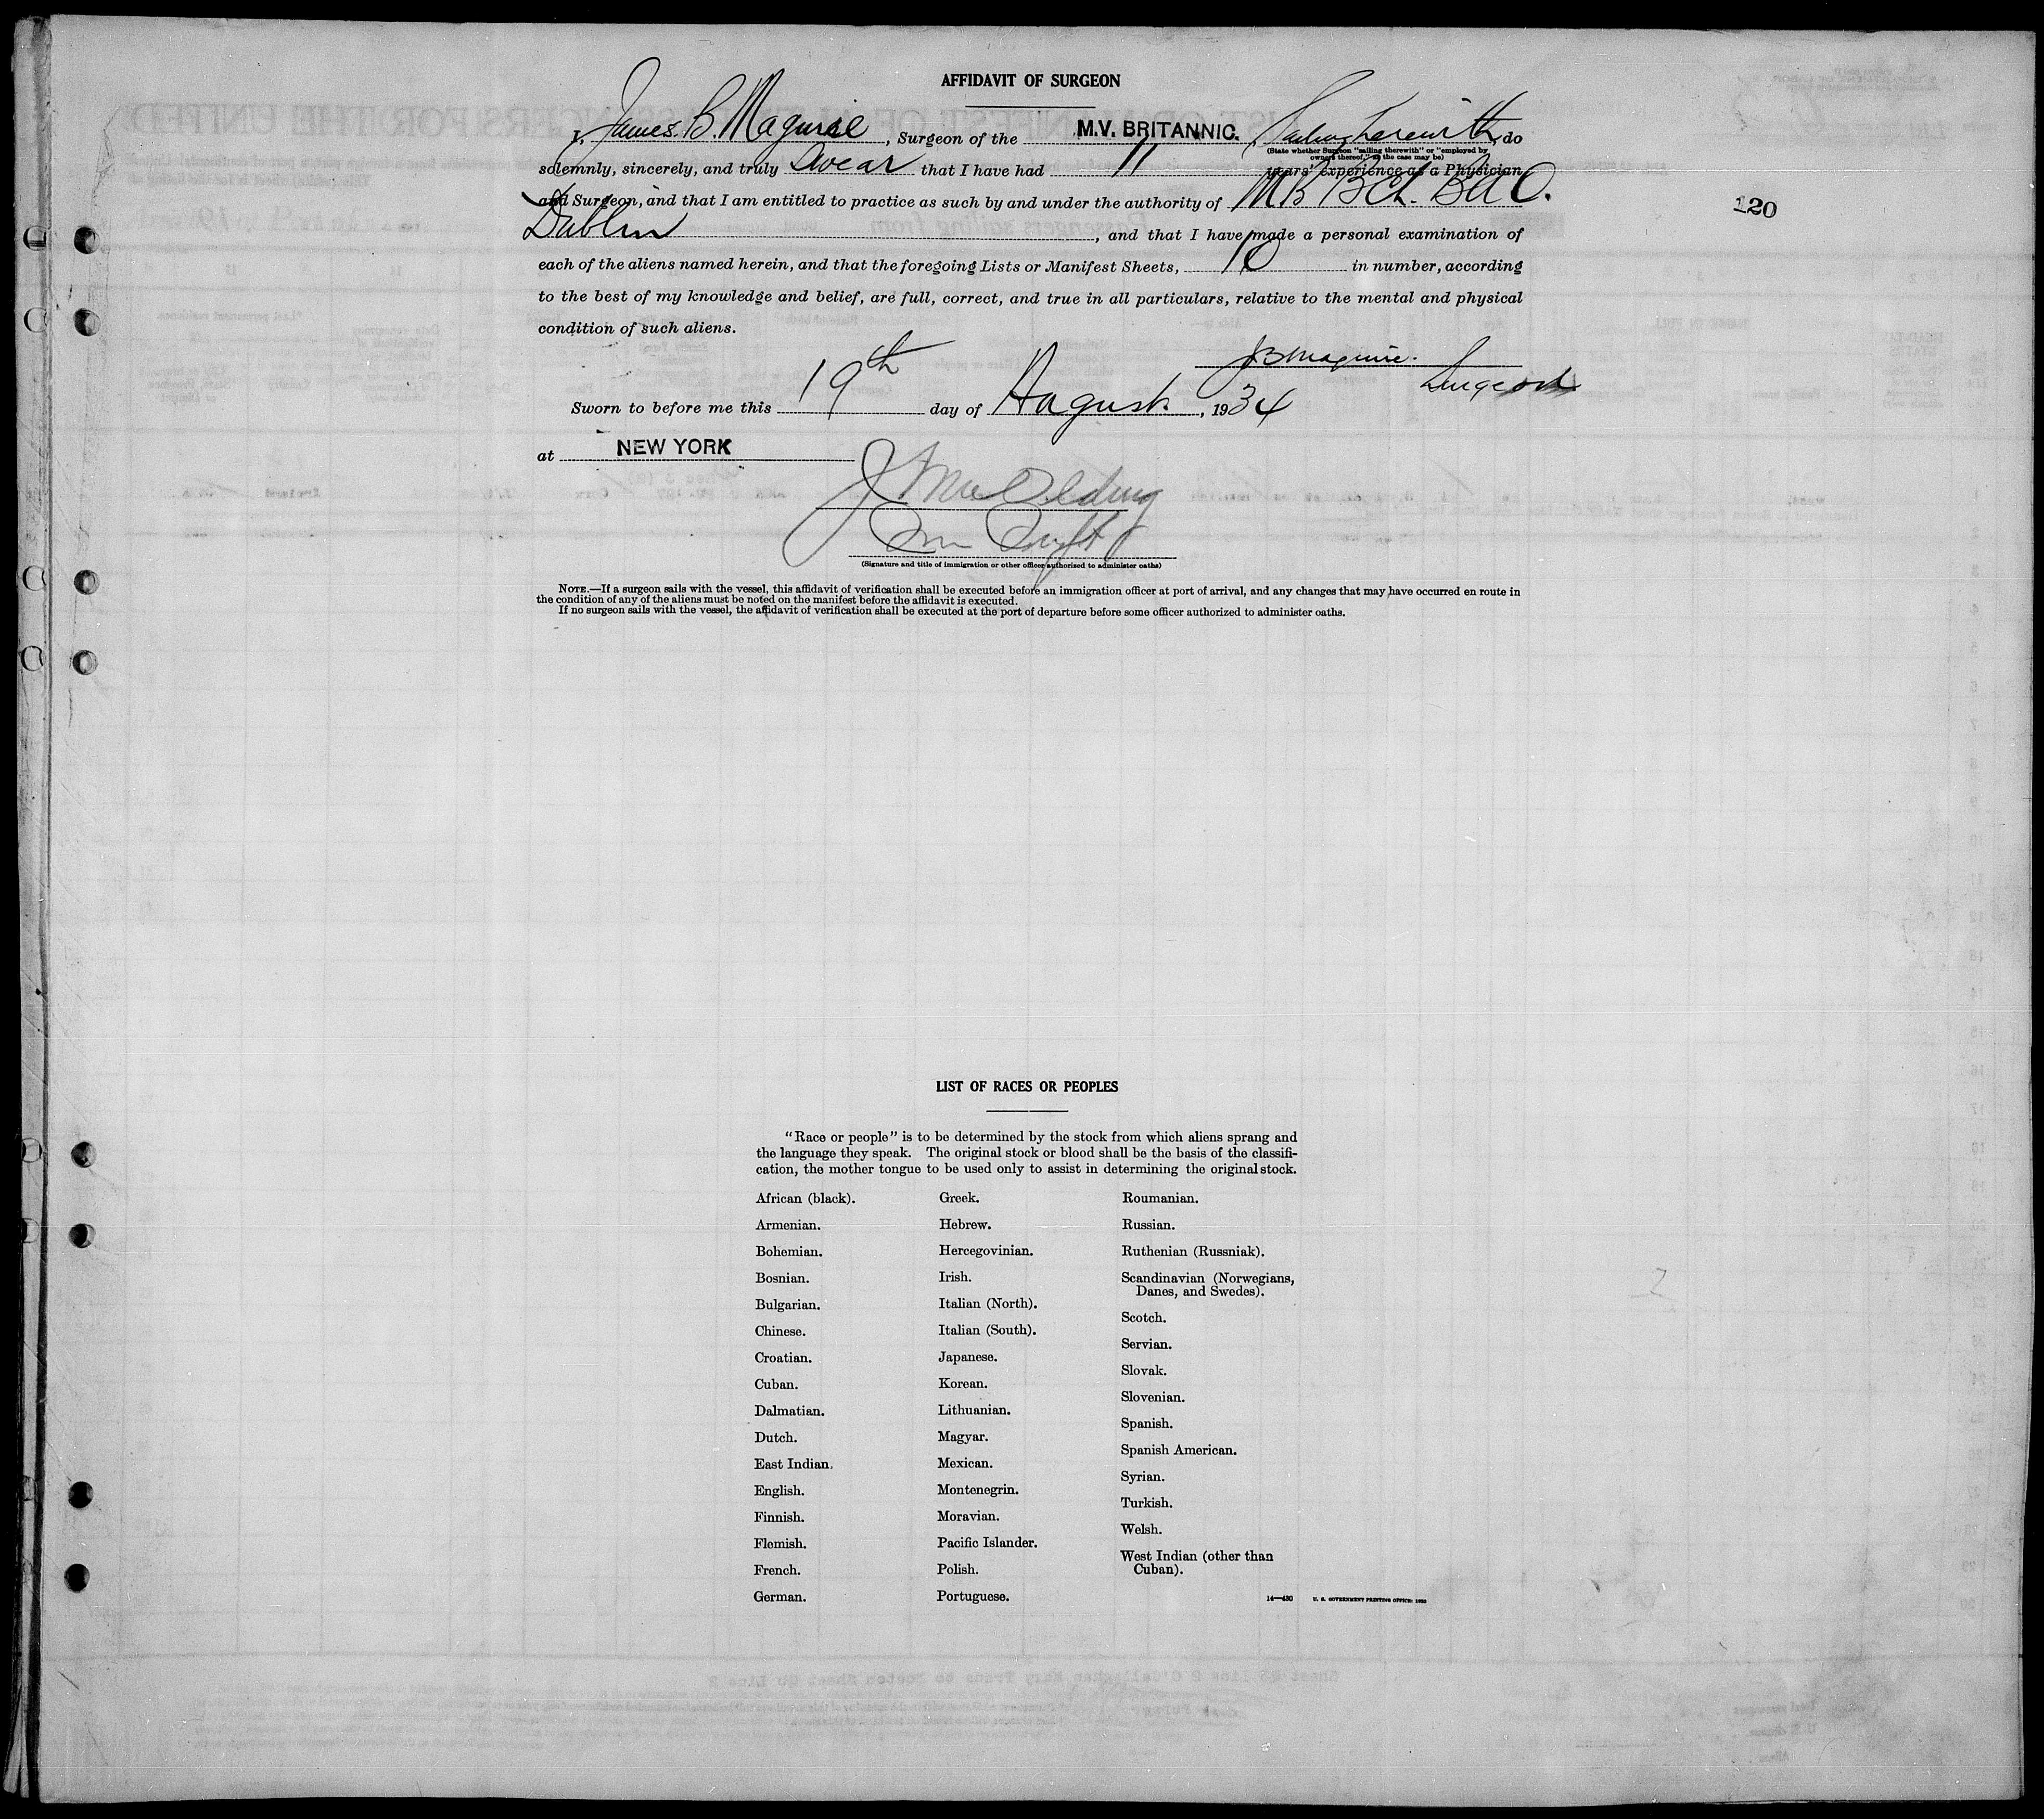 AFFIDAVIT OF SURGEON
I, James. B. Maguire, Surgeon of the M.V. BRITANNIC. Sailing therewith, do
(State whether Surgeon "sailing therewith" or "employed by
owners thereof," as the case may be)
solemnly, sincerely, and truly Swear that I have had 11 years' experience as a Physician
and Surgeon, and that I am entitled to practice as such by and under the authority of MB BCh. BAO.
Dublin, and that I have made a personal examination of
120
each of the aliens named herein, and that the foregoing Lists or Manifest Sheets, 10 in number, according
to the best of my knowledge and belief, are full, correct, and true in all particulars, relative to the mental and physical
condition of such aliens.
JB Maguire.
Surgeon
Sworn to before me this 19th day of August, 1934
at NEW YORK
(Signature and title of immigration or other officer authorized to administer oaths)
NOTE.—If a surgeon sails with the vessel, this affidavit of verification shall be executed before an immigration officer at port of arrival, and any changes that may have occurred en route in
the condition of any of the aliens must be noted on the manifest before the affidavit is executed.
If no surgeon sails with the vessel, the affidavit of verification shall be executed at the port of departure before some officer authorized to administer oaths.
LIST OF RACES OR PEOPLES
"Race or people" is to be determined by the stock from which aliens sprang and
the language they speak. The original stock or blood shall be the basis of the classifi-
cation, the mother tongue to be used only to assist in determining the original stock.
African (black).
Armenian.
Bohemian.
Bosnian.
Bulgarian.
Chinese.
Croatian.
Cuban.
Dalmatian.
Dutch.
East Indian.
English.
Finnish.
Flemish.
French.
German.
Greek.
Hebrew.
Hercegovinian.
Irish.
Italian (North).
Italian (South).
Japanese.
Korean.
Lithuanian.
Magyar.
Mexican.
Montenegrin.
Moravian.
Pacific Islander.
Polish.
Portuguese.
Roumanian.
Russian.
Ruthenian (Russniak).
Scandinavian (Norwegians,
Danes, and Swedes).
Scotch.
Servian.
Slovak.
Slovenian.
Spanish.
Spanish American.
Syrian.
Turkish.
Welsh.
West Indian (other than
Cuban).
14—430 U. S. GOVERNMENT PRINTING OFFICE: